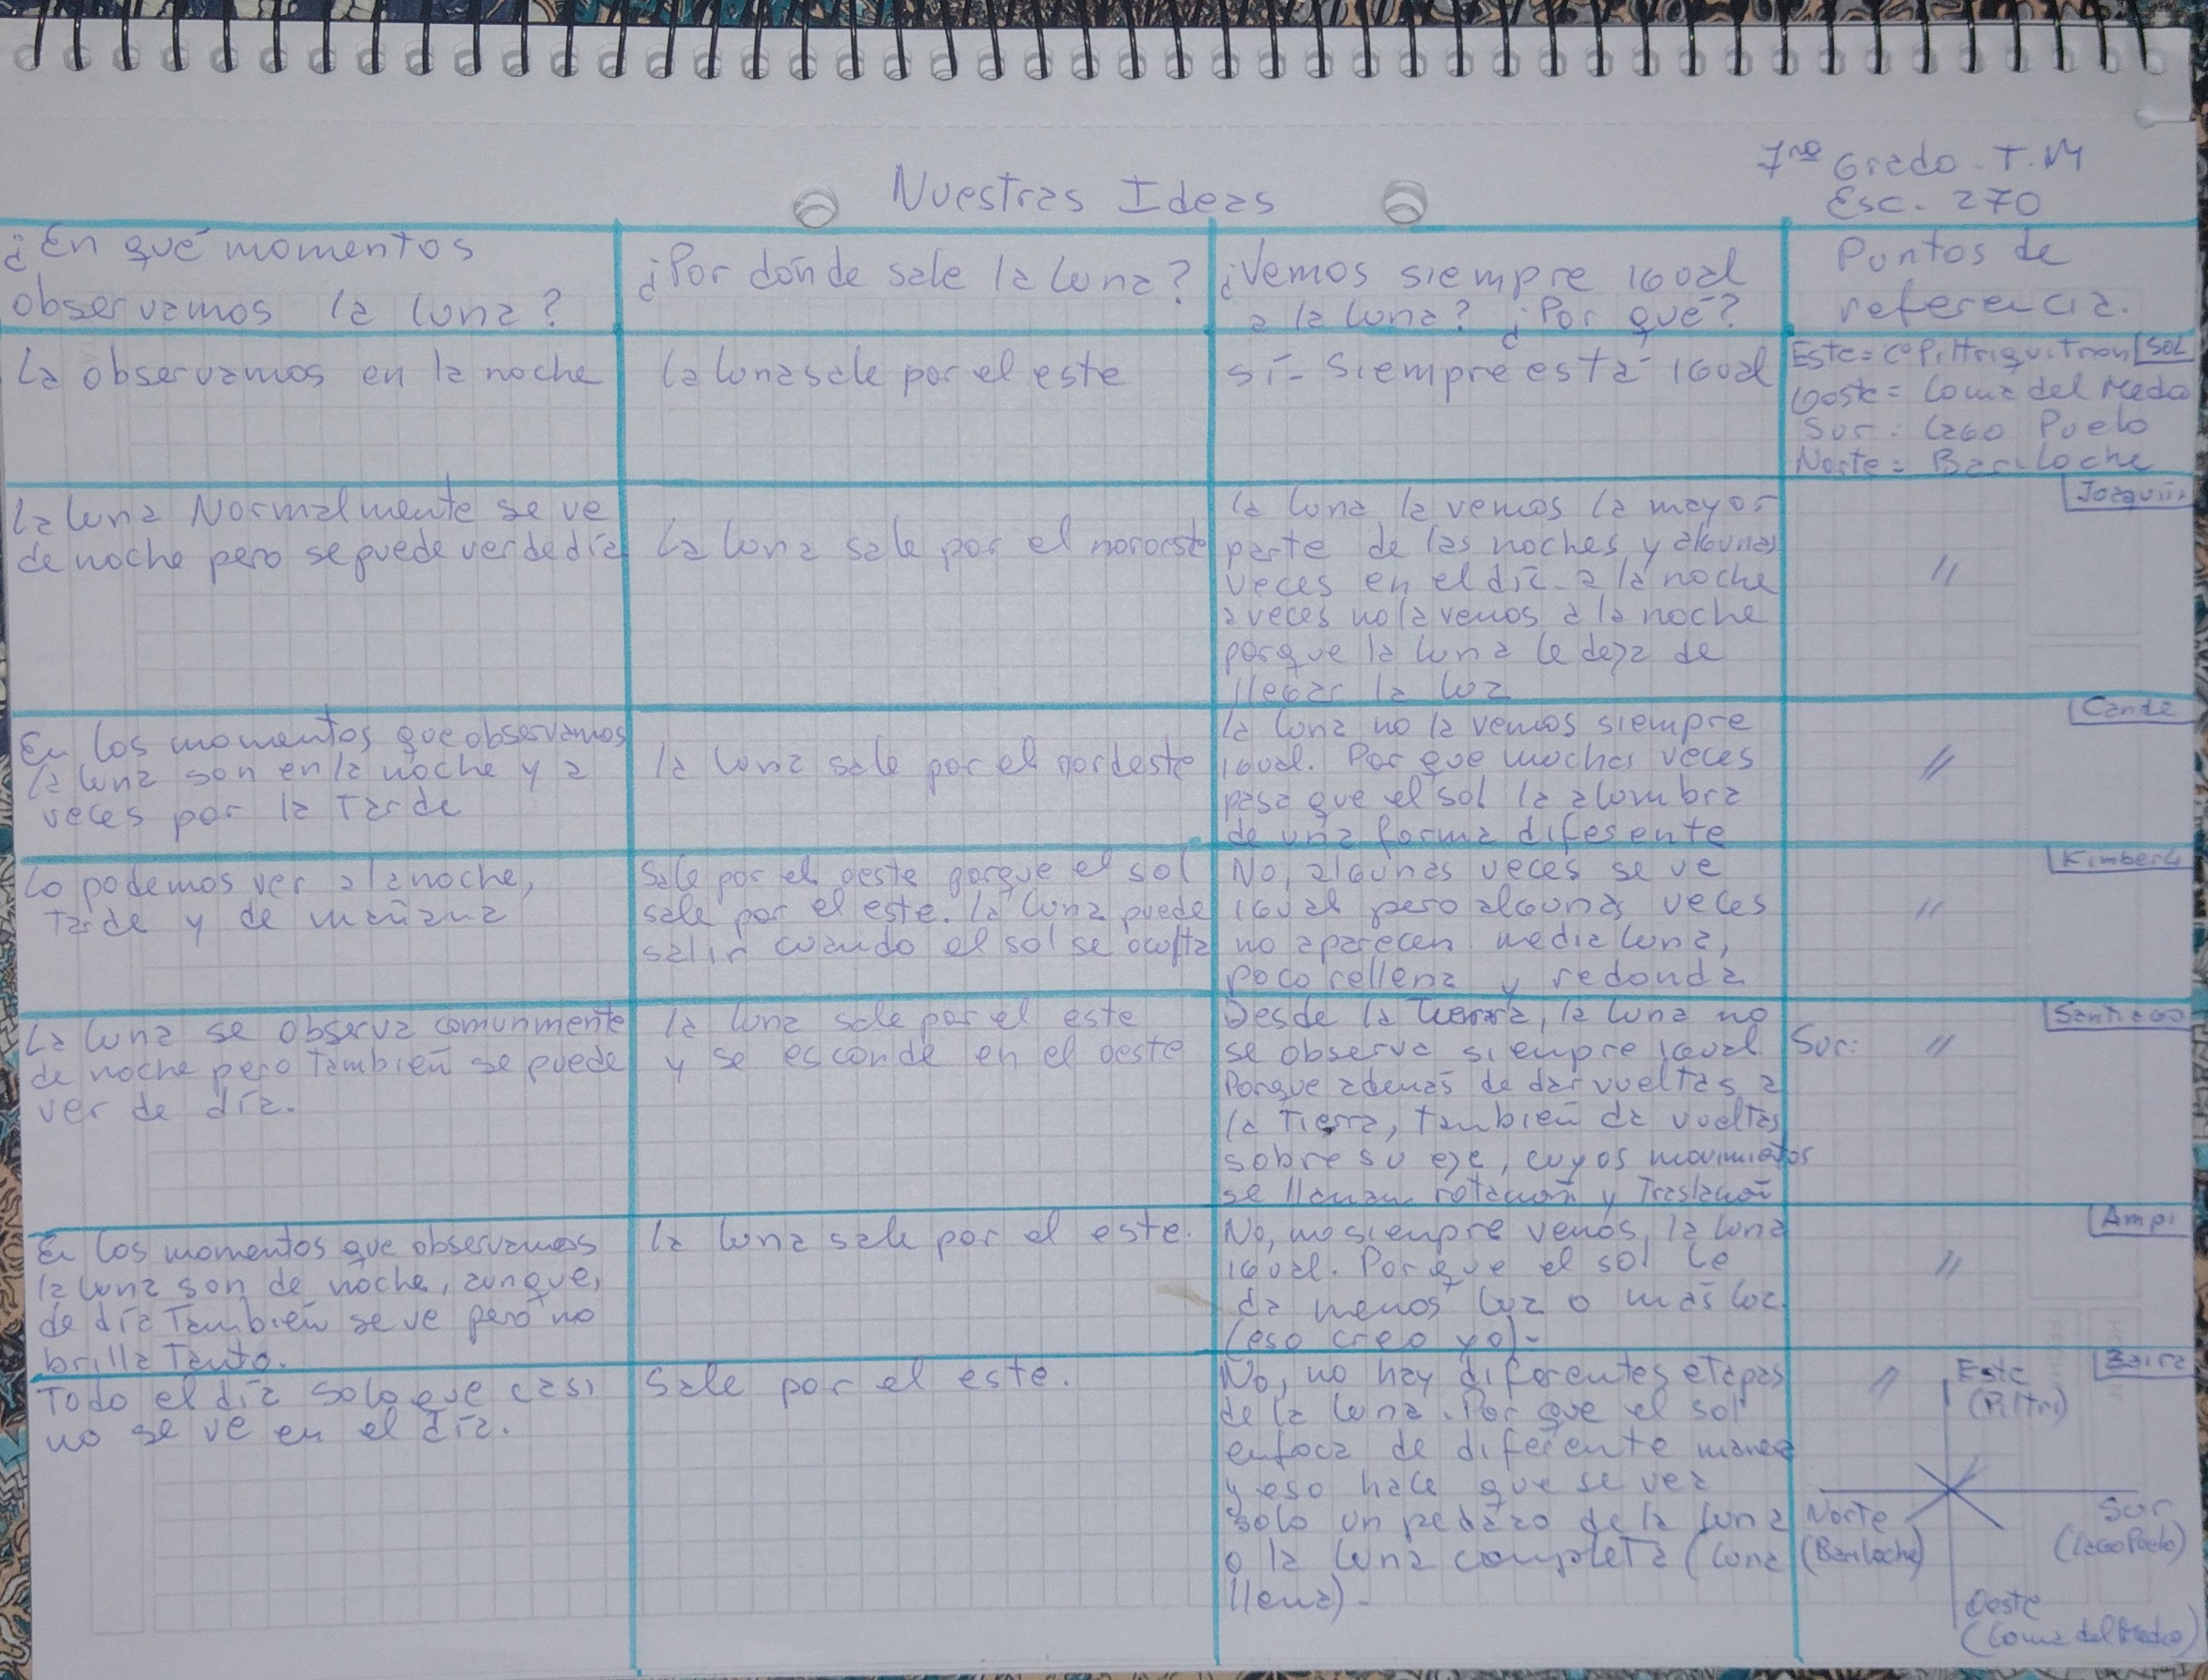 7mo Grado - T.M
Esc. 270
Nuestras Ideas
¿En qué momentos
observamos la luna?
¿Por dónde sale la luna?
¿Vemos siempre igual
a la luna? ¿Por qué?
Puntos de
referencia.
La observamos en la noche
la luna sale por el este
sí - siempre está igual
Este = Cº Piltriquitron SOL
Oeste = Loma del Medio
Sur: Lago Puelo
Norte = Bariloche
La luna Normalmente se ve
de noche pero se puede ver de día
La luna sale por el noroeste
la luna la vemos la mayor
parte de las noches y algunas
veces en el día - a la noche
a veces no la vemos a la noche
porque la luna le deja de
llegar la luz
Joaquín
//
En los momentos que observamos
la luna son en la noche y a
veces por la tarde
la luna sale por el nordeste
la luna no la vemos siempre
igual. Por que muchas veces
pasa que el sol la alumbra
de una forma diferente
Cande
//
Lo podemos ver a la noche,
tarde y de mañana
Sale por el oeste porque el sol
sale por el este. la luna puede
salir cuando el sol se oculta
No, algunas veces se ve
igual pero algunas veces
no aparecen media luna,
poco rellena y redonda
Kimberli
//
La luna se observa comunmente
de noche pero también se puede
ver de día.
la luna sale por el este
y se esconde en el oeste
Desde la Tierra, la luna no
se observa siempre igual
Porque además de dar vueltas a
la Tierra, también da vueltas
sobre su eje, cuyos movimientos
se llaman rotación y Traslación
Santiago
Sur: //
En los momentos que observamos
la luna son de noche, aunque,
de día también se ve pero no
brilla tanto.
la luna sale por el este.
No, no siempre vemos la luna
igual. Por que el sol le
da menos luz o más luz.
(eso creo yo)-
Ampi
//
Todo el día solo que casi
no se ve en el día.
Sale por el este.
No, no hay diferentes etapas
de la luna. Por que el sol
enfoca de diferente manera
y eso hace que se vea
solo un pedazo de la luna
o la luna completa (luna
llena)-
Zaira
//
Este
(Piltri)
Norte
(Bariloche)
Sur
(Lago Puelo)
Oeste
(Loma del Medio)